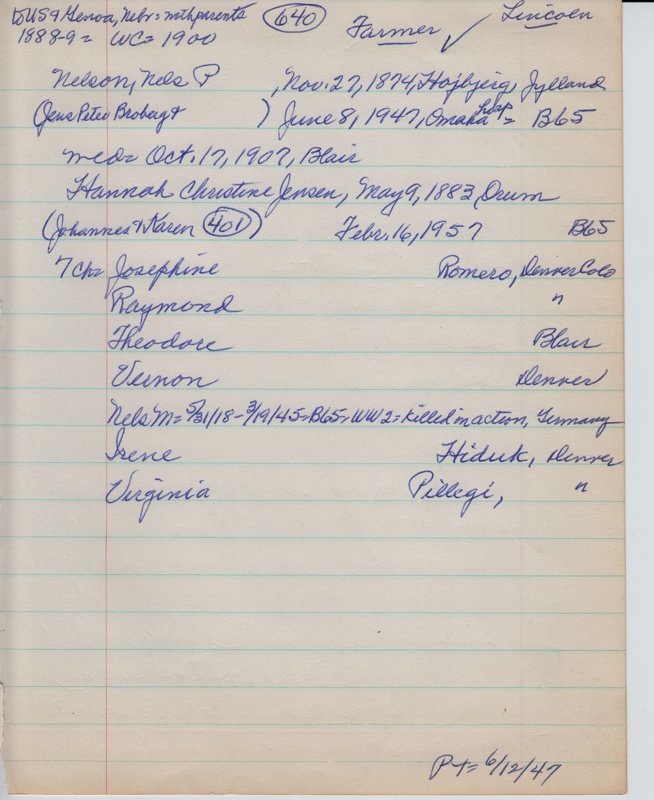 to USA Genoa, Nebr = with parents (640) Farmer ✓ Lincoln
1888-9 = WC = 1900
Nelson, Nels P , Nov. 27, 1874, Hojbjerg, Jylland
(Jens Peter Broberg & ) June 8, 1947, Omaha hosp = B65
med = Oct. 17, 1907, Blair
Hannah Christine Jensen, May 9, 1883, Orum
(Johannes & Karen (401)) Febr. 16, 1957 B65
7 ch = Josephine Romero, Denver Colo
Raymond "
Theodore Blair
Vernon Denver
Nels M = 5/31/18 - 3/19/45 = B65 = WW2 = Killed in action, Germany
Irene Hiduk, Denver
Virginia Pillegi, "
PT = 6/12/47